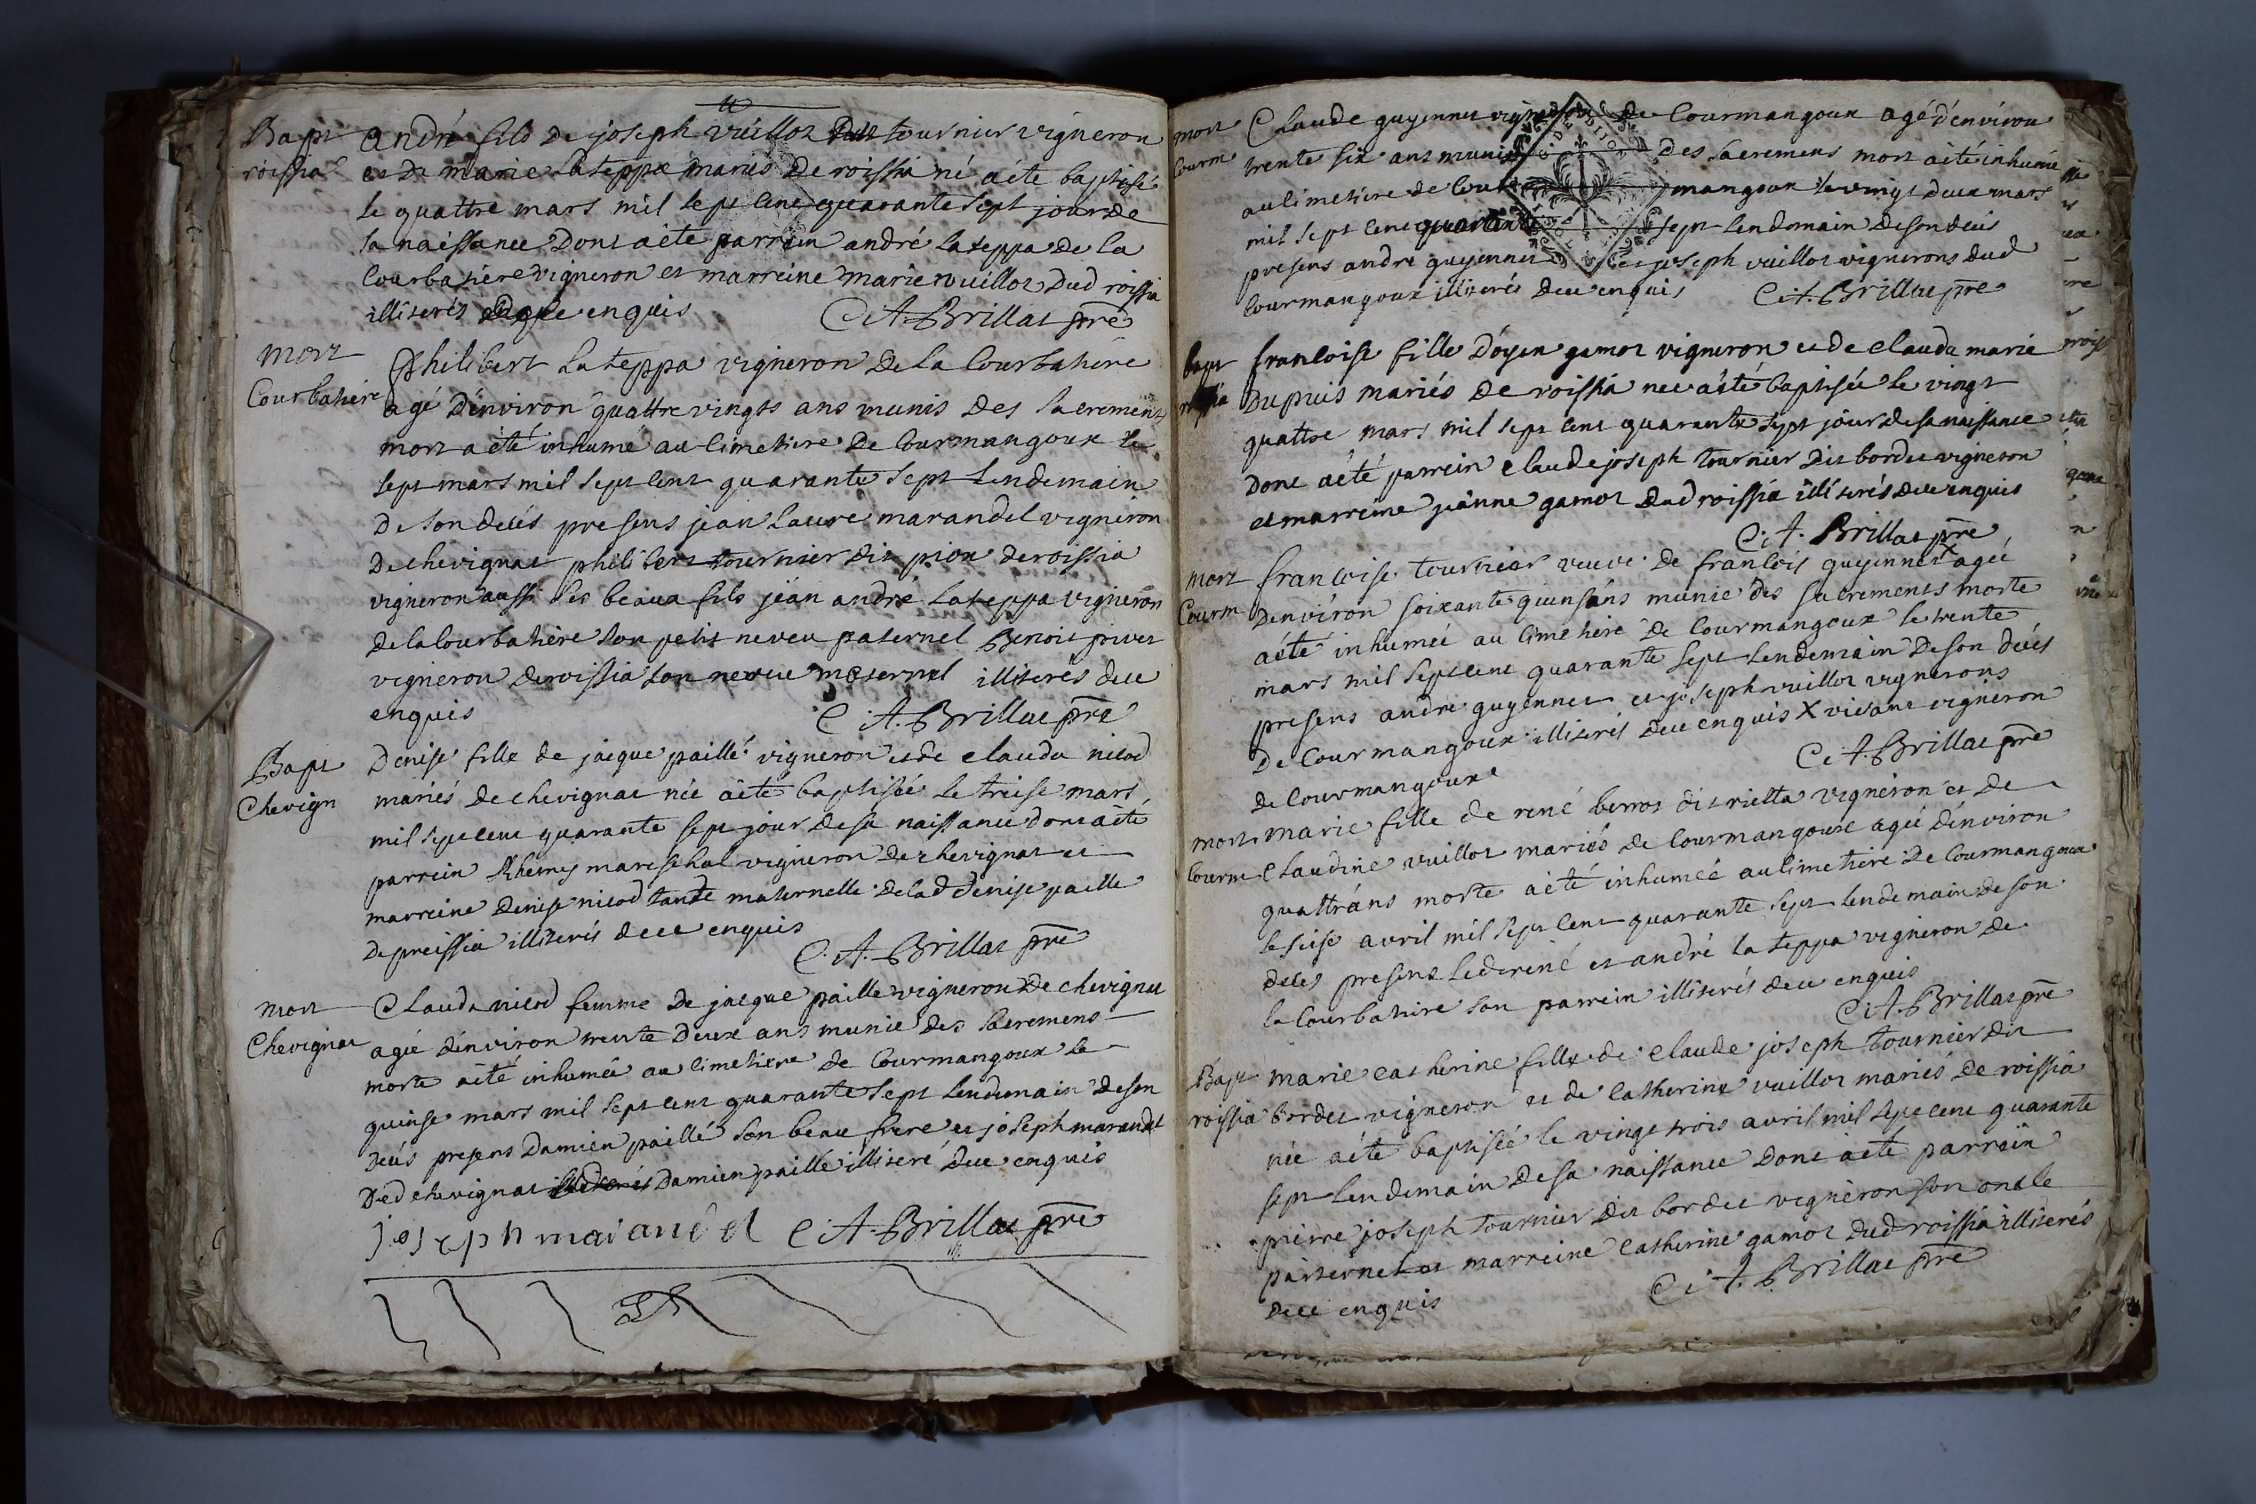 Bapt
roissia
andré fils de joseph vuillot tournier vigneron
et de marie lateppa mariés de roissia né aété baptisé
le quattre mars mil sept cent quarante sept jour de
sa naissance Dont aété parrein andré lateppa de la
Courbatiere vigneron et marreine marie vuillot Dud roissia
illiterés enquis C. A. Brillat pre
mort
Courbatiére
Philibert Lateppa vigneron De la Courbatiére
agé D'environ quattre vingts ans munis Des sacremens
mort a été inhumé au Cimetiere De Courmangoux le
sept mars mil sept cent quarante sept Lendemain
De son decés presens jean Laure marandel vigneron
De chevignat philibert tournier dit pion de roissia
vigneron aussi ses beaux fils jean andré Lateppa vigneron
de la Courbatiére son petit neveu paternel Benoit pivet
vigneron de roissia son neveu maternel illiterés dece
enquis C. A. Brillat pre
Bapt
Chevign
Denise fille de jacque paillé vigneron et de Clauda nicod
mariés de chevignat née aété baptisée Le treise mars
mil sept cent quarante sept jour de sa naissance Dont aété
parrein mareschal vigneron De chevignat et
marreine Denise nicod tante maternelle de lad denise paille
De preissia illiterés dece enquis
C. A. Brillat pre
mort
Chevignat
Clauda nicod femme De jacque paille vigneron De chevignat
agée d'environ trente Deux ans munie Des sacremens
morte aété inhumée au Cimetiere de Courmangoux le
quinse mars mil sept cent quarante sept Lendemain De son
decés presens Damien paillé son beau frere et joseph marandel
Dud chevignat Damien paillé illiteré Dece enquis
joseph marandel C. A. Brillat pre
mort
Courm
Claude guyennet de Courmangoux agé d'environ
trente six ans munis Des sacremens mort aété inhumé
au Cimetiere de Courmangoux le vingt deux mars
mil sept cent quarante sept Lendemain De son decés
presens andré guyennet et joseph vuillot vignerons dud
Courmangoux illiterés Dece enquis C. A. Brillat pre
bapt
roissia
francoise fille D'oyen gamot vigneron et de Clauda marie
Dupuis mariés De roissia née aété baptisée Le vingt
quattre mars mil sept cent quarante sept jour de sa naissance
Dont aété parrein Claude joseph tournier Dit bordet vigneron
et marreine jeanne gamot Dud roissia illiterés dece enquis
C. A. Brillat pre
mort
Courm
francoise tournier veuve De francois guyennet X agée
D'environ soixante quinse ans munie Des sacrements morte
aété inhumée au Cimetiére De Courmangoux le trente
mars mil sept cent quarante sept Lendemain De son decés
presens andré guyennet et joseph vuillot vignerons
De Courmangoux illiterés Dece enquis X vivant vigneron
de Courmangoux C. A. Brillat pre
mort
Courm
marie fille de rené berrot dit rietta vigneron et De
Claudine vuillot mariés De Courmangoux agée d'environ
quattr'ans morte aété inhumée au Cimetiére De Courmangoux
le seise avril mil sept cent quarante sept Lendemain de son
deces presens led rené et andré lateppa vigneron De
la Courbatiere son parrein illiterés dece enquis
C. A. Brillat pre
Bapt
roissia
marie catherine fille de Claude joseph tournier dit
bordet vigneron et de Catherine vuillot mariés De roissia
née aété baptisée le vingt trois avril mil sept cent quarante
sept Lendemain De sa naissance Dont aété parrein
pierre joseph tournier Dit bordet vigneron son oncle
paternel et marreine Catherine gamot Dud roissia illiterés
dece enquis C. A. Brillat pre